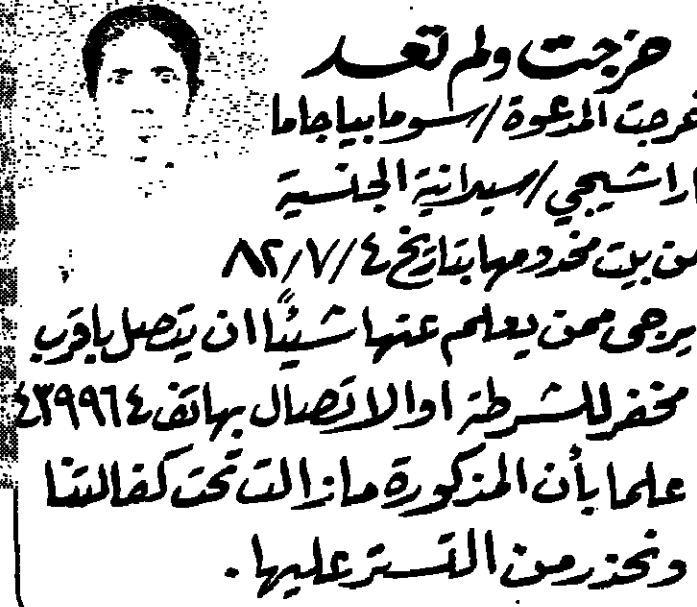 خرجت ولم تعد
خرجت المدعوة / سومابياجاما
اراشيجي / سيلانية الجنسية
من بيت مخدومها بتاريخ ٨٢/٧/٤
يرجى ممن يعلم عنها شيئاً ان يتصل باقرب
مخفر للشرطة او الاتصال بهاتف ٤٣٩٩٦٤
علما بأن المذكورة مازالت تحت كفالتنا
ونحذر من التستر عليها .